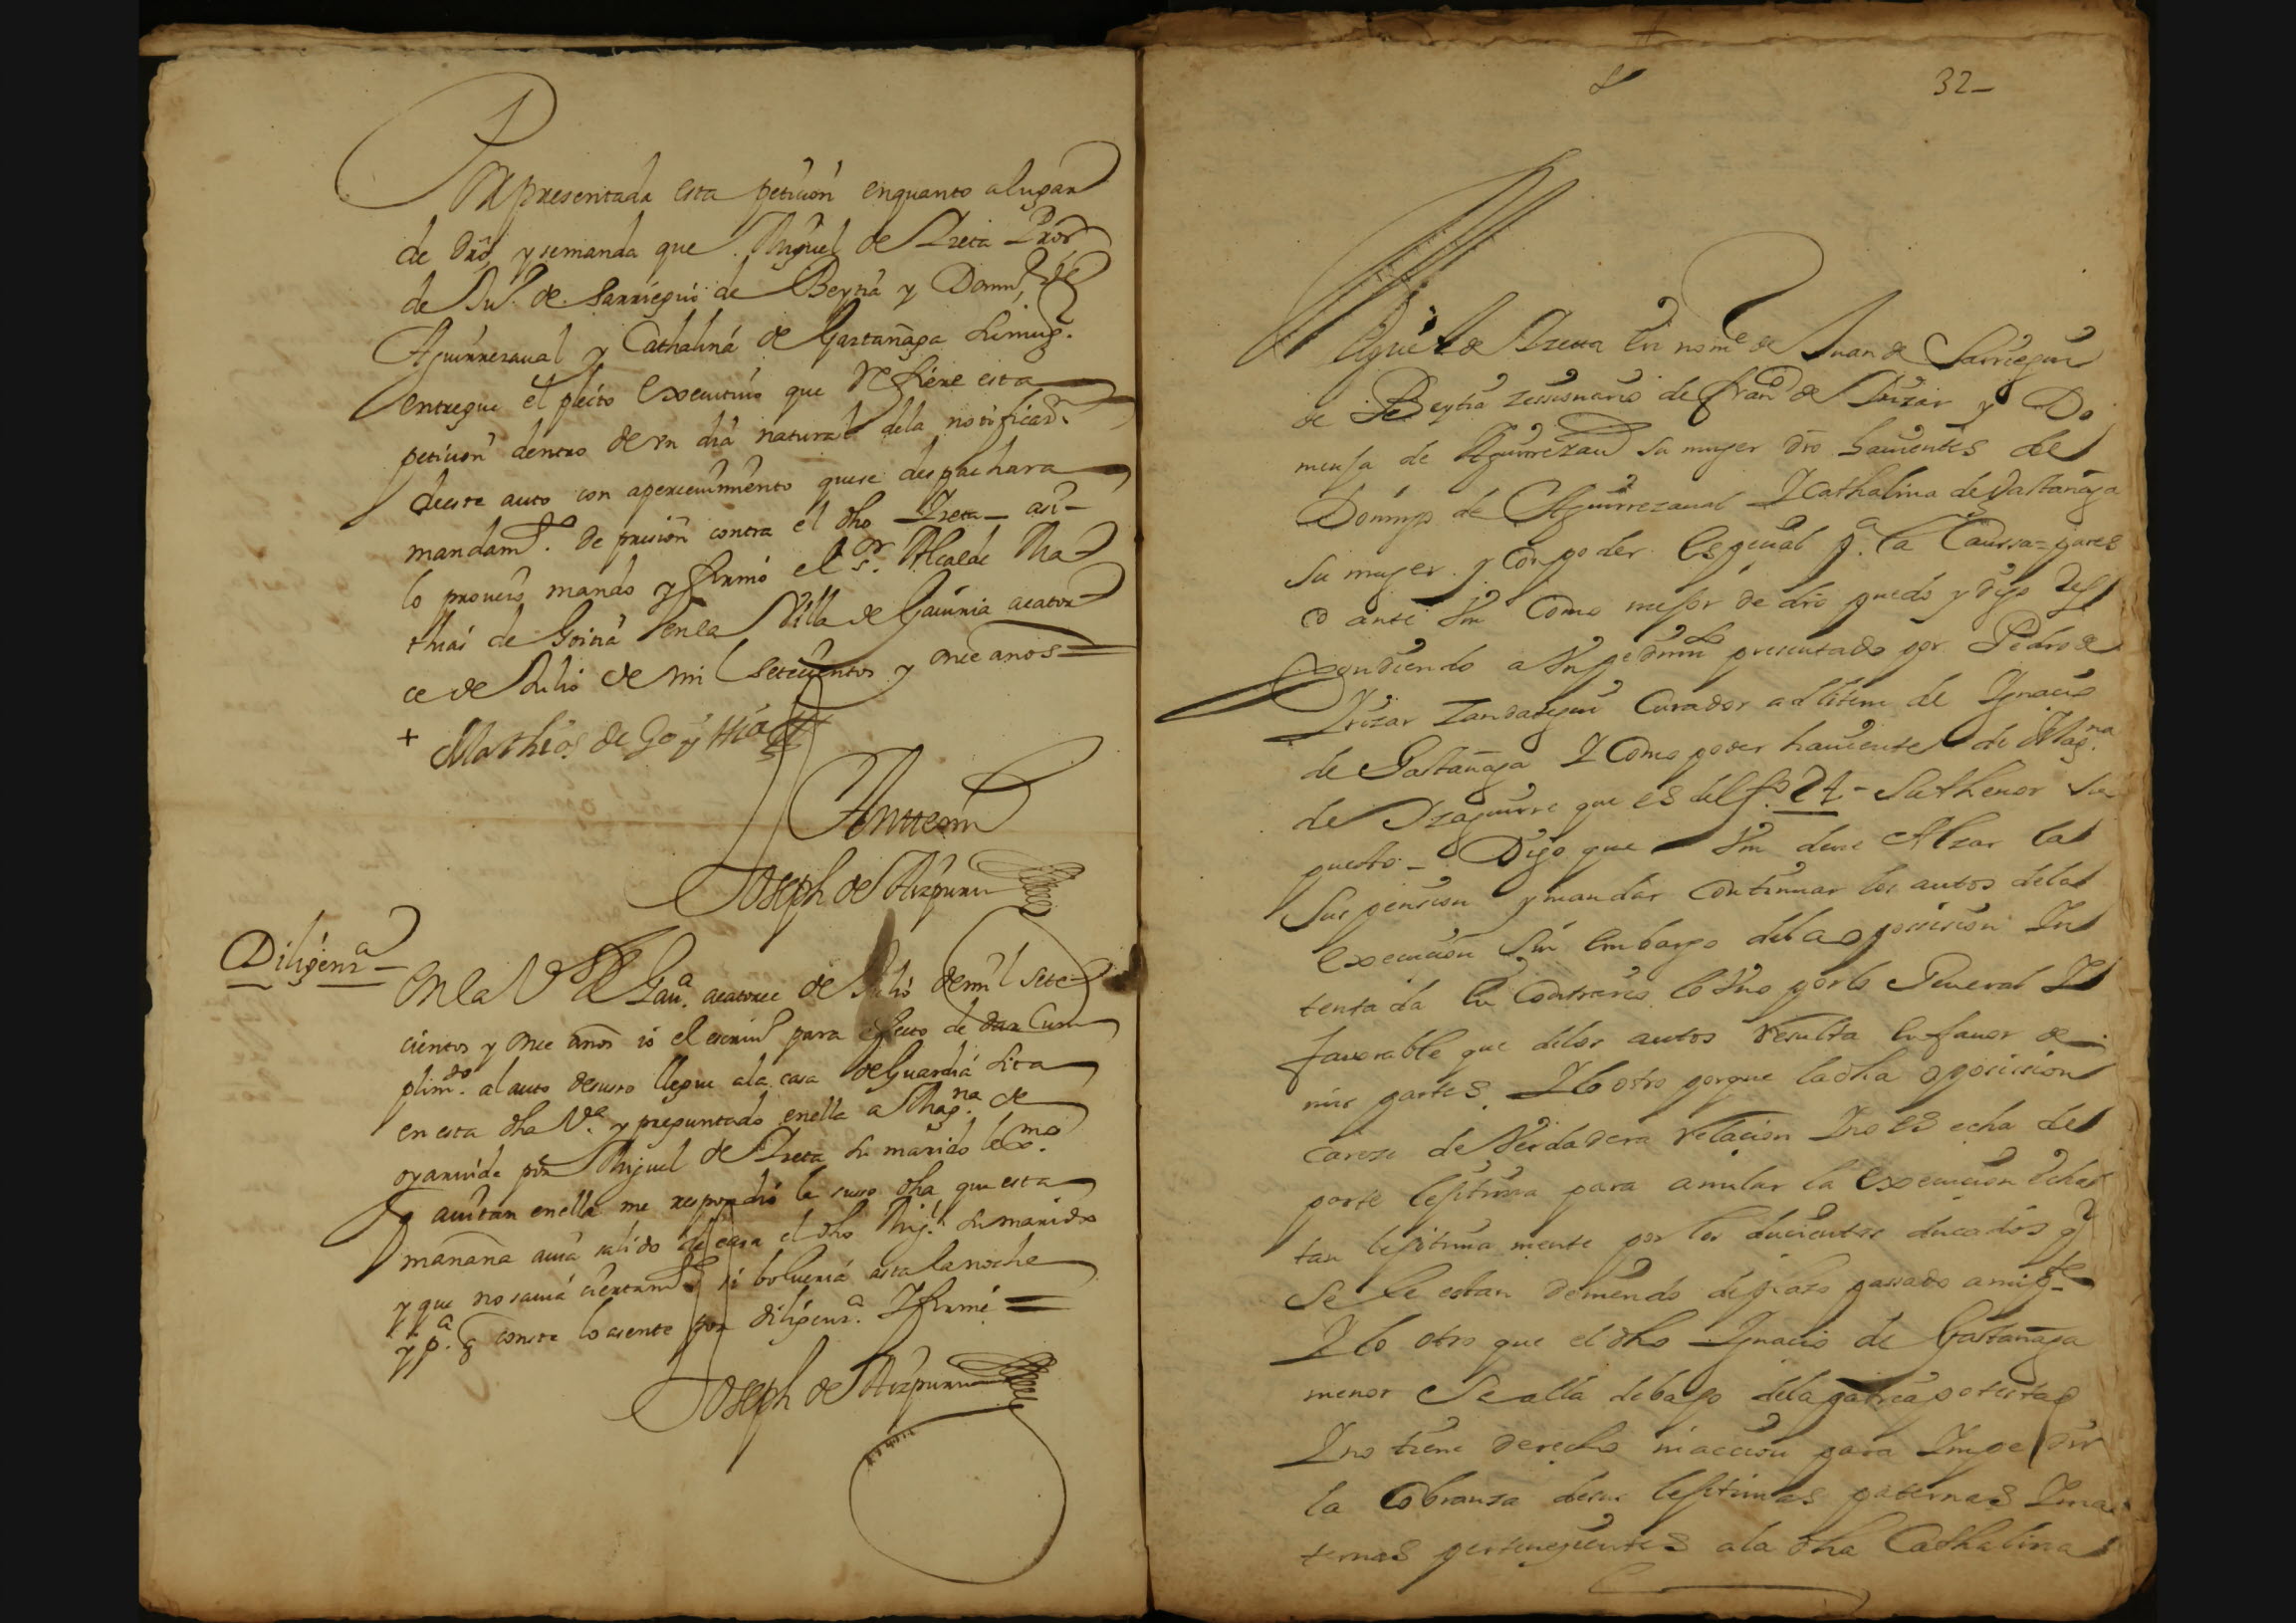 Por presentada esta petizion enquanto alugar
de dro, y semanda que Miguel de Izeta Pror
de Juº. de Sarriegui de Beytia y Domª. de
Aguirrezaual y Cathalina de Gaztañaga su muger.
entregue el pleito executivo que refiere esta
petizion dentro de vn dia natural dela notificazn.
deeste auto con aperceuimiento quese despachara
mandamto. de prision contra el dho Izeta asi
lo proueio mando y firmo el sor. Alcalde Ma
thias de Goitia enla Villa de Gauiria acator
ce de Julio de mil setecientos y once años =
+ Mathias de Goytia
Antemi
Joseph de Aizpuru
Diligenza
En la Vª de Gauª. acatorce de Julio demil sete
cientos y once años io el escriuº para efecto de dar Cum
plimto. al auto desuso llegue ala casa de Guardia sita
en esta dha Vª. y preguntado enella a Magna. de
oyaruide por Miguel de Izeta su marido lexmo.
q auitan enella me respondio la suso dha que esta
mañana auia salido de casa el dho Migl. su marido
y que no sauia ciertamte si bolueria asta la noche
y pª. q conste lo asente por diligenzª. Y firme =
Joseph de Aizpuru
32
Miguel de Izetta En nome de Juan de Sarriegui
de Beytia zessionario de Franco de Irizar y Do
minja de Aguirrezaual su muger dro hauientes de
Domingo de Aguirrezaual Y Cathalina de Gastañaga
su muger y Con poder Especial pª. la Caussa = pares
co ante Vm Como mejor de dro puedo y digo Res
pondiendo a Vn pedimto presentado por Pedro de
Irizar Zandategui Curador ad litem de Ignacio
de Gastañaga Y Como poder hauiente de Magna.
de Yzaguirre que es del fº. 24 - Su thenor su
puesto - Digo que Vm deue Alzar la
Suspension y mandar Continuar los autos dela
Execucion Sin Embargo dela oposicion In
tentada En Contrario lo Vno por lo General Y
fauorable que delos autos resulta En fauor de
mis partes. Y lo otro porque la dha oposicion
Carese de Verdadera relacion Y no es echa de
parte lejitima para anular la Execucion echa
tan lejitima mente por los ducientos ducados q
Se le estan deuiendo de plaso passado a mi pte
Y lo otro que el dho Ignacio de Gastañaga
menor Se alla debajo dela patria potestad
Y no tiene derecho ni accion para Impedir
la Cobranza desus lejitimas paternas Y ma
ternas pertenecientes ala dha Cathalina